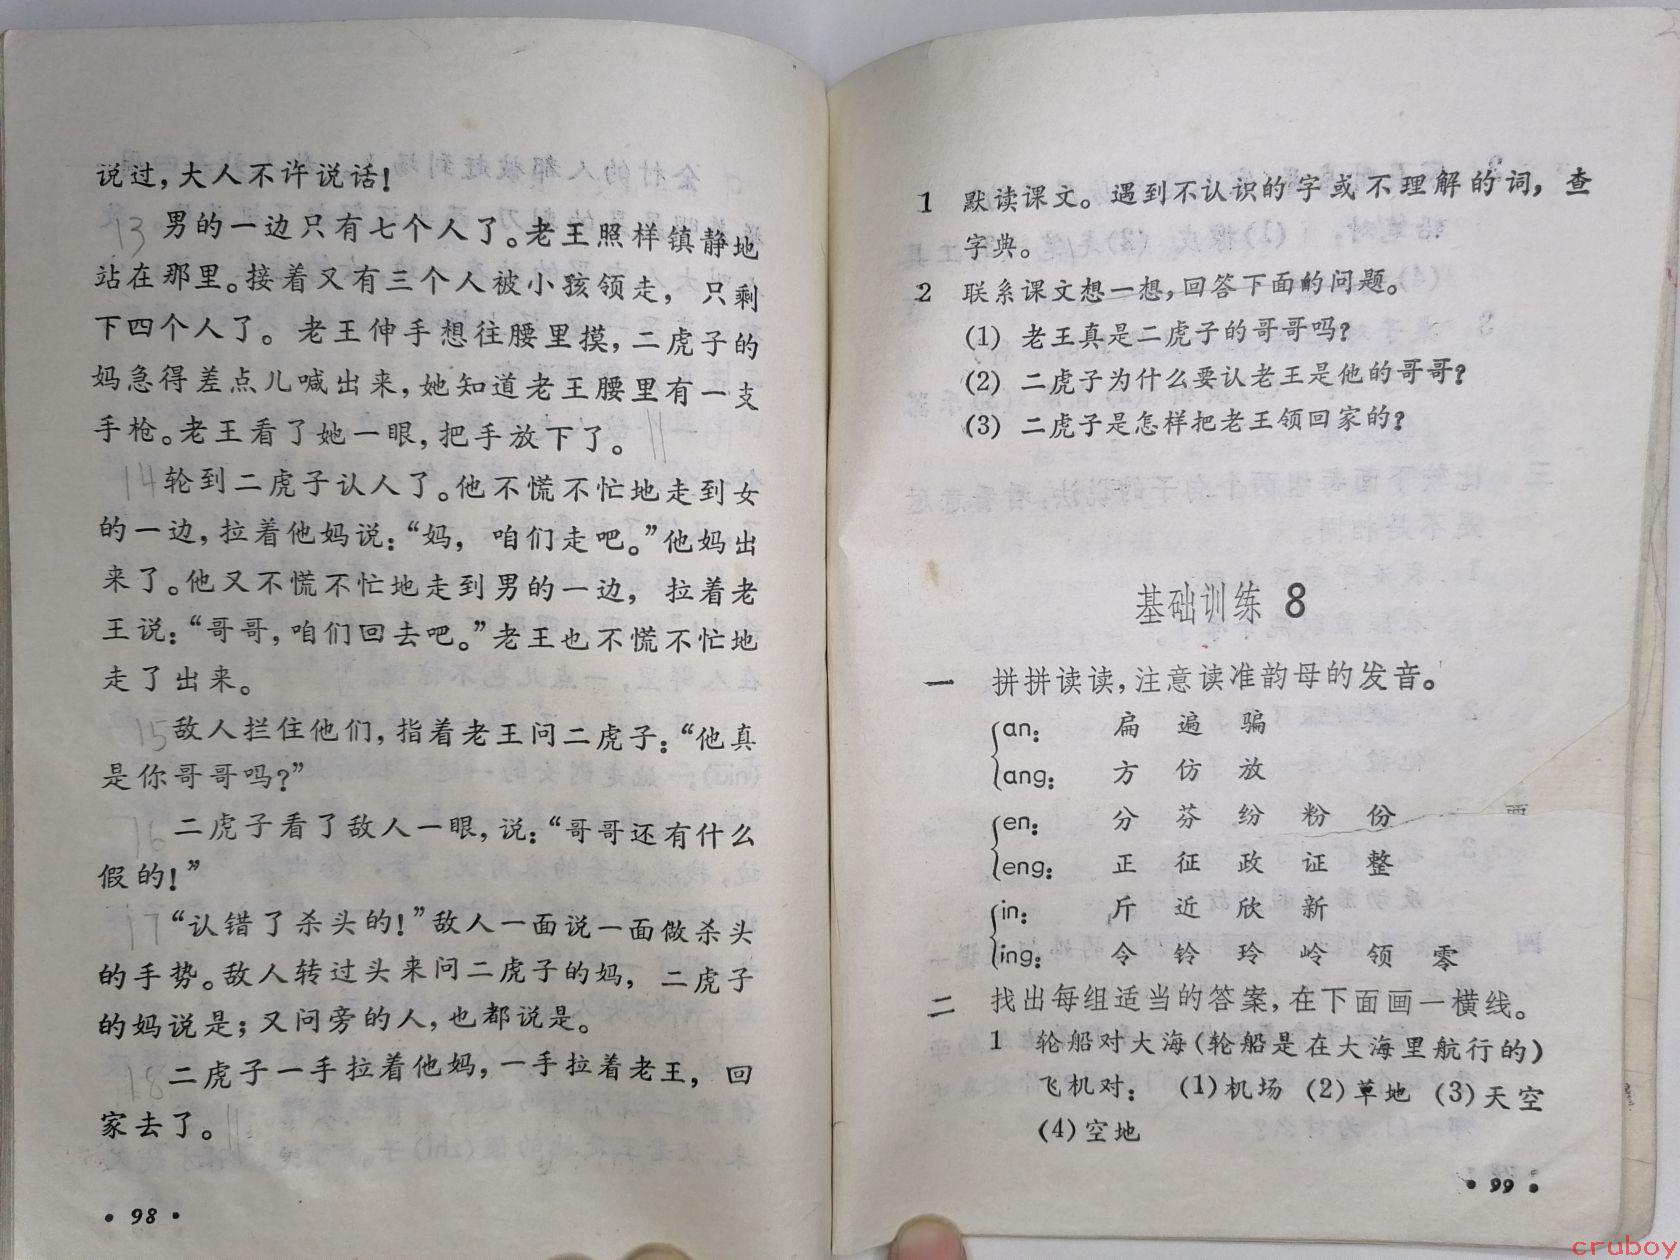 说过，大人不许说话！
13 男的一边只有七个人了。老王照样镇静地
站在那里。接着又有三个人被小孩领走，只剩
下四个人了。老王伸手想往腰里摸，二虎子的
妈急得差点儿喊出来，她知道老王腰里有一支
手枪。老王看了她一眼，把手放下了。
14 轮到二虎子认人了。他不慌不忙地走到女
的一边，拉着他妈说：“妈，咱们走吧。”他妈出
来了。他又不慌不忙地走到男的一边，拉着老
王说：“哥哥，咱们回去吧。”老王也不慌不忙地
走了出来。
15 敌人拦住他们，指着老王问二虎子：“他真
是你哥哥吗？”
16 二虎子看了敌人一眼，说：“哥哥还有什么
假的！”
17 “认错了杀头的！”敌人一面说一面做杀头
的手势。敌人转过头来问二虎子的妈，二虎子
的妈说是；又问旁的人，也都说是。
18 二虎子一手拉着他妈，一手拉着老王，回
家去了。
• 98 •
1 默读课文。遇到不认识的字或不理解的词，查
字典。
2 联系课文想一想，回答下面的问题。
(1) 老王真是二虎子的哥哥吗？
(2) 二虎子为什么要认老王是他的哥哥？
(3) 二虎子是怎样把老王领回家的？
基础训练 8
一 拼拼读读，注意读准韵母的发音。
an： 扁 遍 骗
ang： 方 仿 放
en： 分 芬 纷 粉 份
eng： 正 征 政 证 整
in： 斤 近 欣 新
ing： 令 铃 玲 岭 领 零
二 找出每组适当的答案，在下面画一横线。
1 轮船对大海（轮船是在大海里航行的）
飞机对： (1)机场 (2)草地 (3)天空
(4)空地
• 99 •
cruboy